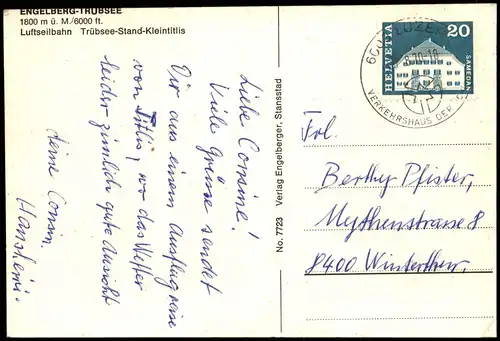 ENGELBERG-TRÜBSEE
1800 m ü. M./6000 ft.
Luftseilbahn Trübsee-Stand-Kleintitlis
Liebe Cousine!
Viele Grüsse sendet
Dir aus einem Ausflug
von Titlis, wo das Wetter
leider ziemlich gute Aussicht
Deine Cousin
Hansheiri.
No. 7723 Verlag Engelberger, Stansstad
HELVETIA
20
SAMEDAN
LUZERN
VERKEHRSHAUS DER
Frl.
Berthy Pfister,
Mythenstrasse 8
8400 Winterthur.